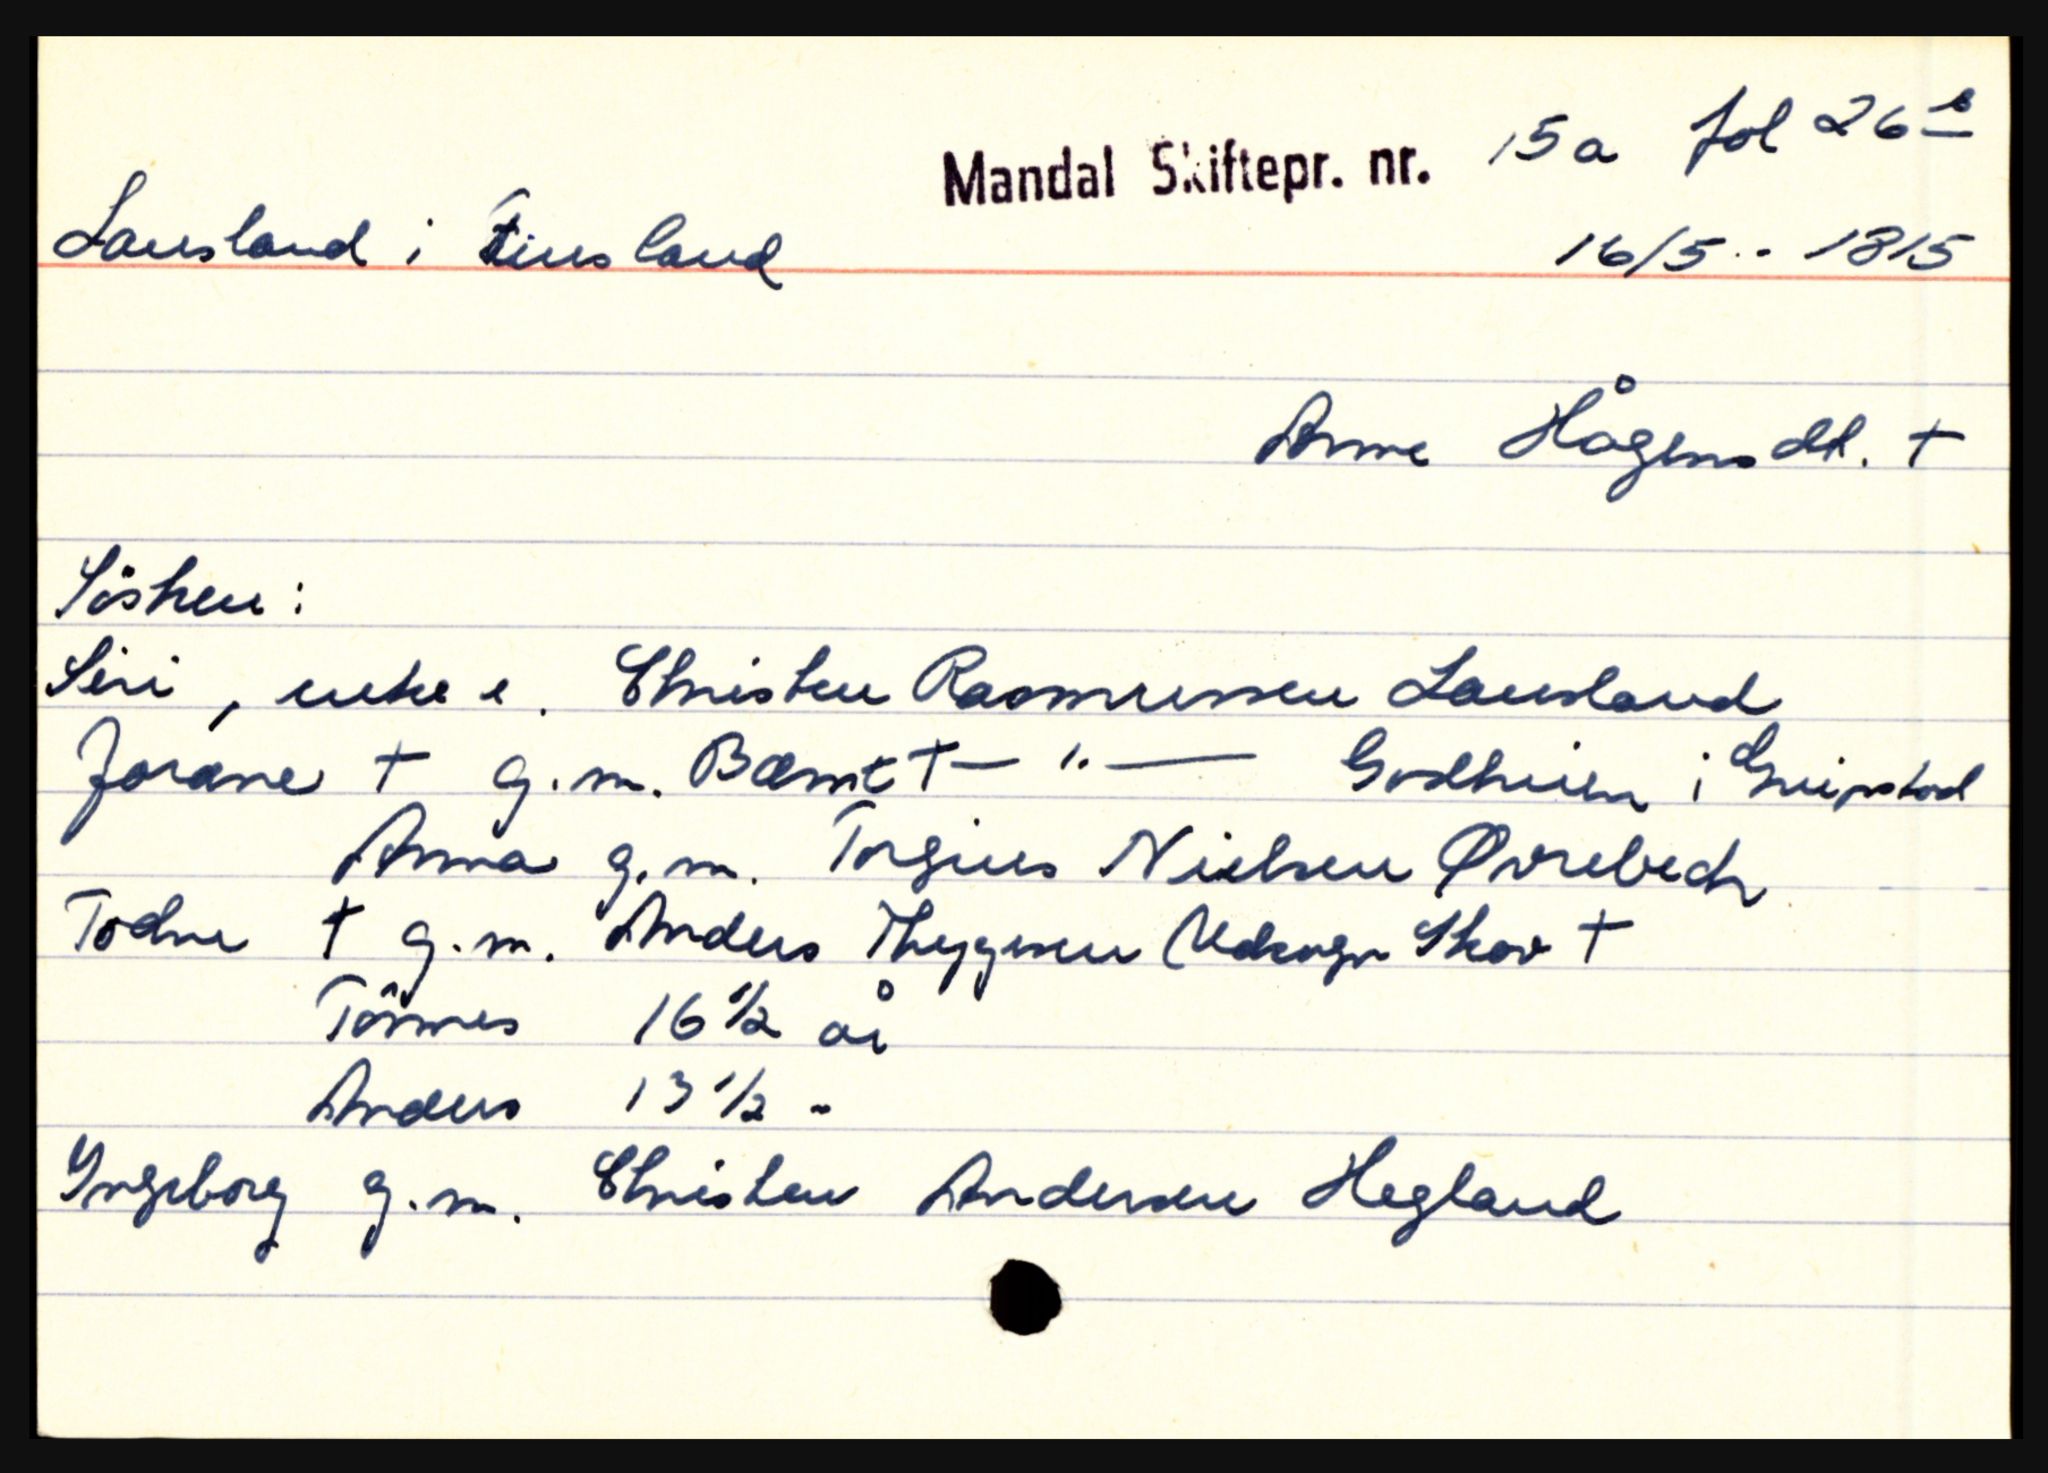 Mandal Skiftepr. nr. 15a fol 26 b
Lausland i Finsland 16/5 - 1815
Anne Hågensdt. †
Sösken:
Siri, enke e. Christen Rasmussen Lausland
Joræne † g.m. Bernt † — " — Godheien i Greipstad
Anna g.m. Torgius Nielsen Øvrebech
Todne † g.m. Anders Thygesen Skov †
Tönnes 16 1/2 år
Anders 13 1/2 -
Yngeborg g.m. Christen Andersen Hegland